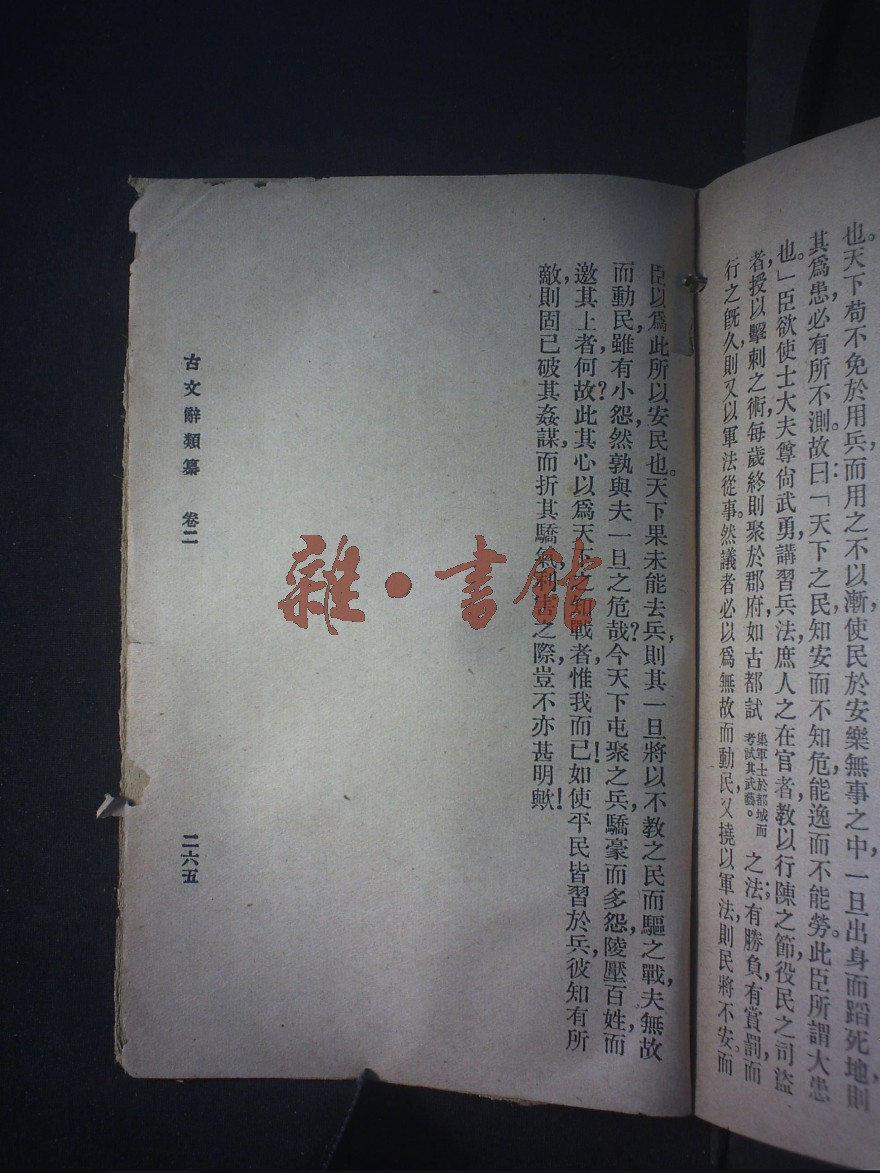 也。天下苟不免於用兵,而用之不以漸,使民於安樂無事之中,一旦出身而蹈死地,則
其爲患必有所不測。故曰:「天下之民知安而不知危,能逸而不能勞。此臣所謂大患
也。」臣欲使士大夫尊尙武勇,講習兵法;庶人之在官者,教以行陳之節;役民之司盜
者,授以擊刺之術。每歲終則聚於郡府,如古都試集軍士於都城而考試其武藝。之法,有勝負,有賞罰。而
行之旣久,則又以軍法從事。然議者必以爲無故而動民,又撓以軍法,則民將不安。而
臣以爲此所以安民也。天下果未能去兵,則其一旦將以不教之民而驅之戰,夫無故
而動民,雖有小怨,然孰與夫一旦之危哉?今天下屯聚之兵,驕豪而多怨,陵壓百姓,而
邀其上者,何故?此其心以爲天下之知戰者,惟我而已!如使平民皆習於兵,彼知有所
敵,則固已破其姦謀,而折其驕氣。利害之際,豈不亦甚明歟!
古文辭類纂 卷二
二六五
雜·書館